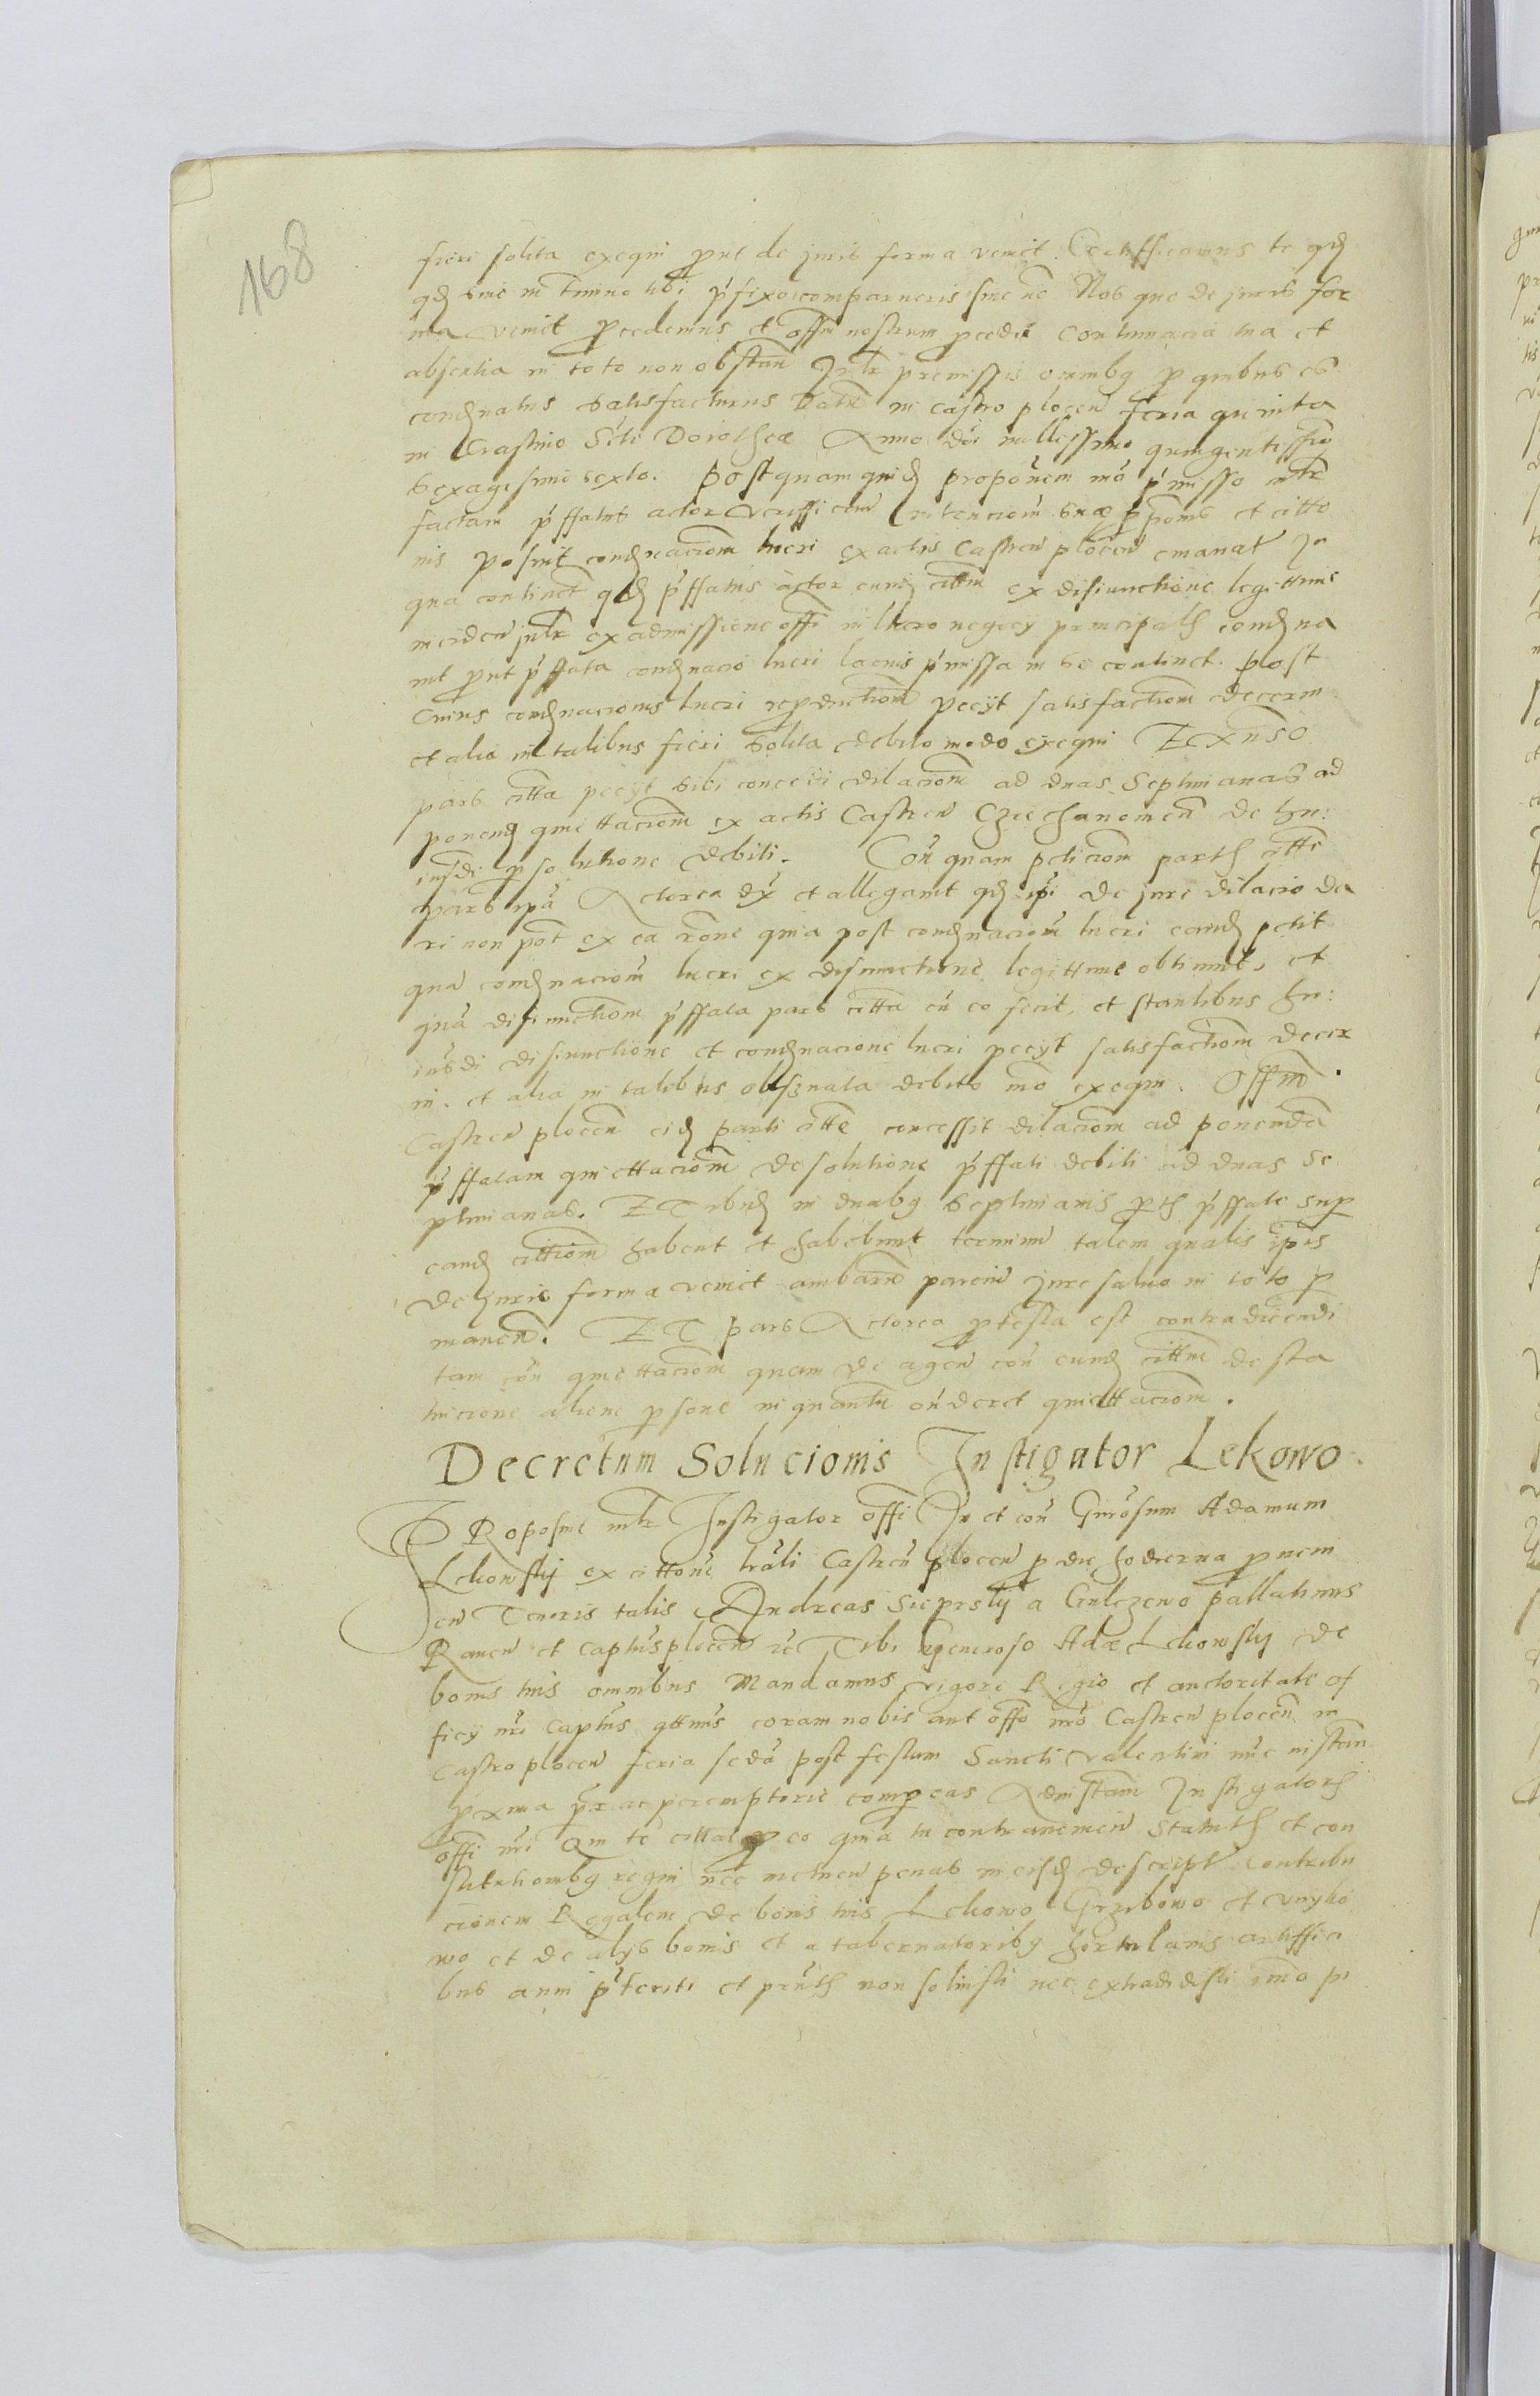 168
fieri solita exequi prout de juris forma venit. Certifficamus te qd
qd sive in termino tibi p'fixo comparueris sive ne Nos que de juris for
ma venit procedemus et offm nostrum procedet contumacia tua et
absentia in toto non obstan Jnltr premissis omnibq pro quibus es
condnatus satisfacturus Datu in Castro plocen feria quinta
in Crastino Scti Dorotheæ Anno dni millessimo quingentissimo
sexagesimo sexto. postquam quid proponem mo p'misso inltr
factam p'ffatus actor veriffican intencionem suæ proponis et citto
nis posuit condnacionem lucri ex actis Castren plocen emanat Jn
qua continet qd p'ffatus actor eund cittm ex disiunctione legittime
inciden jnltr ex admissione offi in lucro negocy principalis condna
uit prout p'ffata condnacio lucri lacius p'missa in se continet. post
cuius condnacionis lucri reproductionem pecyt satisfactionem decerni
et alia in talibus fieri solita debito modo exequi EX adverso
pars citta pecyt sibi concedi dilacionem ad duas septimanas ad
ponend quiettacionem ex actis Castren Cziechanowien de hu:
iusdi persolutione debiti. Con quam peticionem partis citte
pars ipa Actorea dix et allegavit qd ipi de jure dilacio da
ri non pot ex ea rone quia post condnacionem lucri eand petit
qua condnacionem lucri ex disiunctione legittime obtinuit, et
qua disiunctionem p'ffata pars citta cu eo fecit, et stantibus hu:
iusdi disiunctione et condnacione lucri pecyt satisfactionem decer
ni. et alia in talibus obseruata debito mo exequi. Offm
Castren plocen eid parti citte concessit dilacionem ad ponenda
p'ffatam quiettacionem de solutione p'ffati debiti ad duas se
ptimanas. ET ibid in duabq septimanis partes p'ffate super
eand cittionem habent et habebunt terminu talem qualis ipis
de juris forma venit ambaru parciu jure saluo in toto per
manen. ET pars Actorea protesta est contradicendi
tam con quiettacionem quam de agen con eund cittm de sta
tuicione aliene persone in quantu onderet quiettacionem.
Decretum Solucionis Instigator Lekowo.
PRoposuit inltr Instigator offi In et con Gnrosum Adamum
Lekowsky ex cittone lrali Castren plocen pro die hodierna pronem
cu Tenoris talis Andreas Sieprsky a Gulczewo pallatinus
Rauen et Captus plocen ec Tibi generoso Adæ Lekowsky de
bonis tuis omnibus Mandamus vigore Regio et auctoritate of
ficy nri Captus qttnus coram nobis aut offo nro Castren plocen in
Castro plocen feria scda post festum Sancti valentini nuc instan
proxima pr ac peremptorie compeas Adinstam Instigatoris
offi nri Qui te cittat pro eo quia tu contraueniens Statutis et con
stitutionibq regni nec metuen penas in eisd descript contribu
cionem Regalem de bonis tuis Lekowo Grzibowo et vnyko
wo et de alys bonis et a tabernatoribq hortulanis artiffici
bus anni p'teriti et prntis non soluisti nec extradidisti imo pe